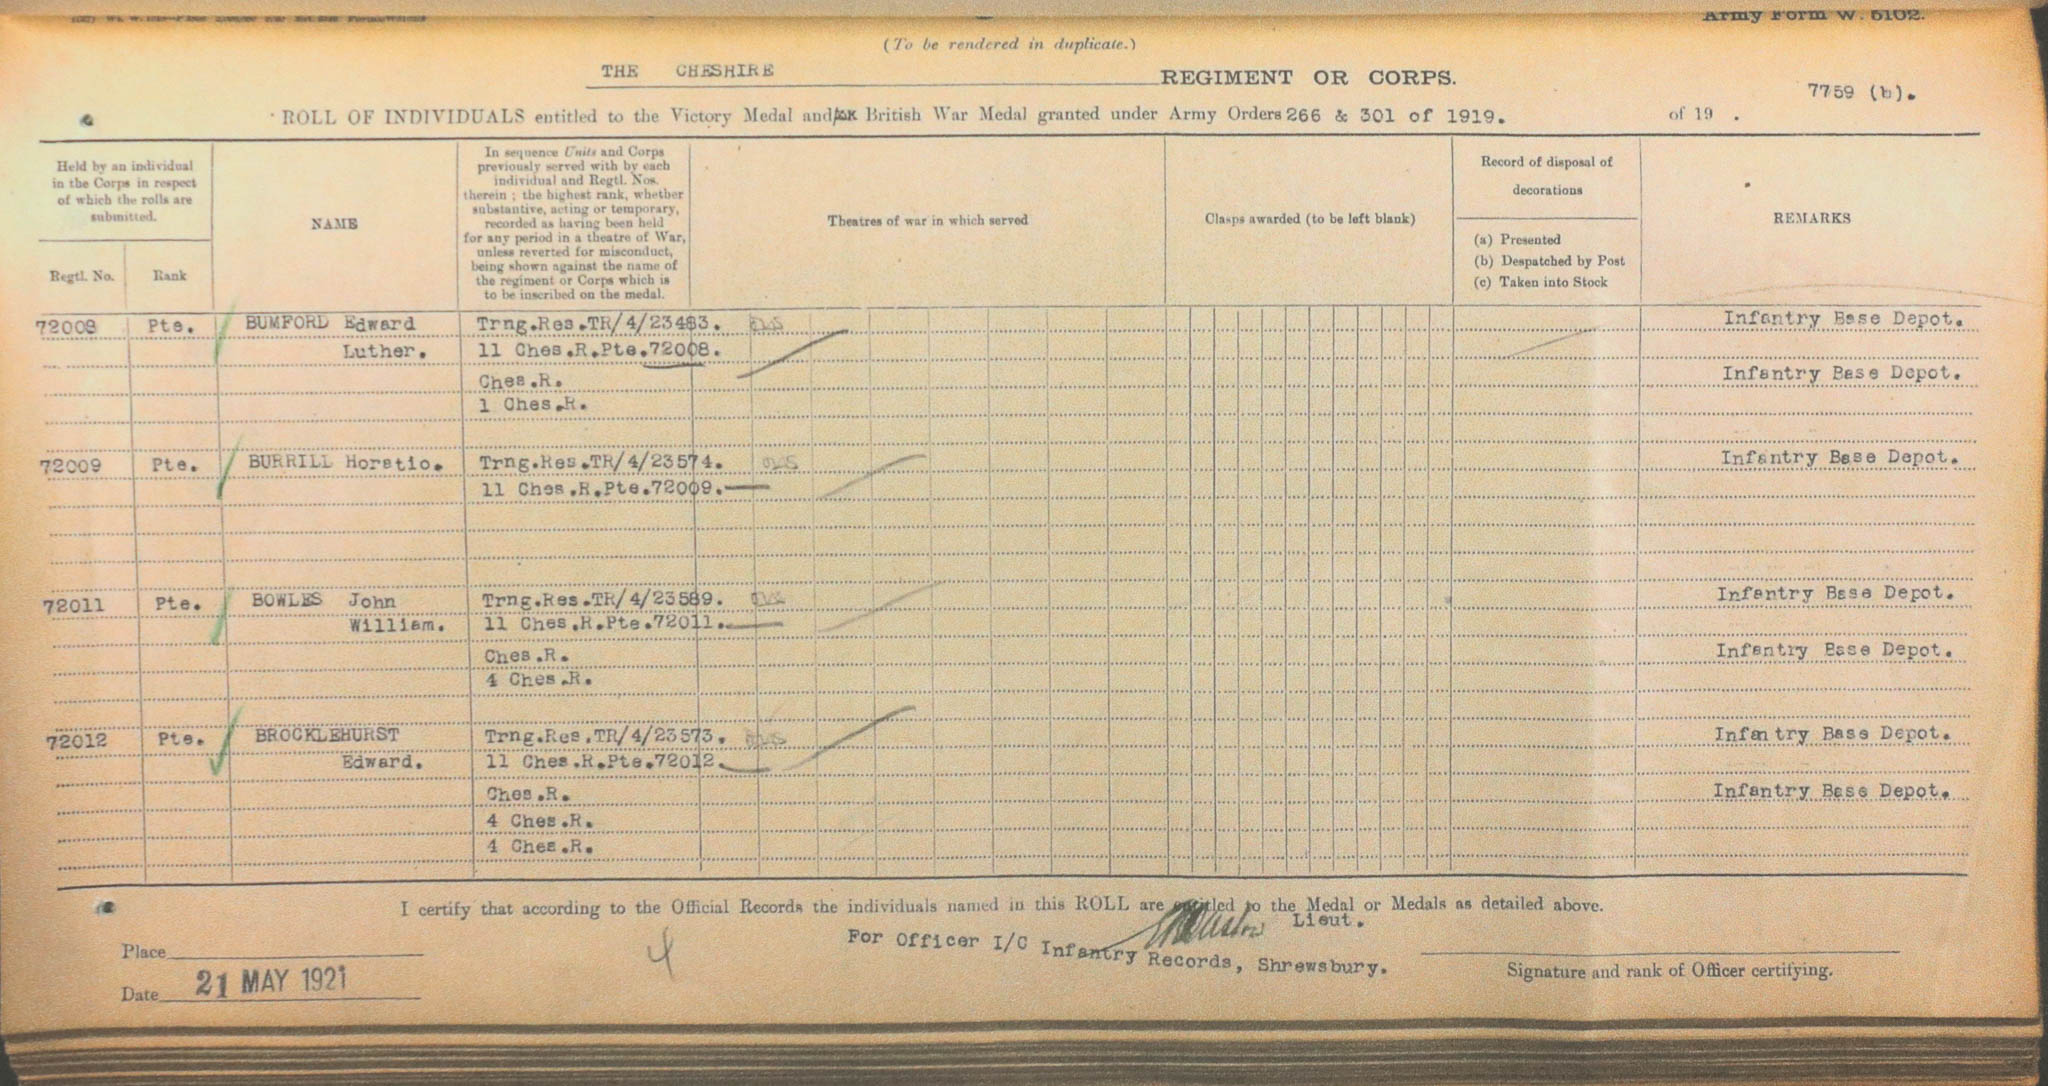 Army Form W. 5102.
(To be rendered in duplicate.)
THE CHESHIRE REGIMENT OR CORPS.
7759 (b).
ROLL OF INDIVIDUALS entitled to the Victory Medal and/or British War Medal granted under Army Orders 266 & 301 of 1919. of 19 .
Held by an individual
in the Corps in respect
of which the rolls are
submitted.
Regtl. No. Rank
NAME
In sequence Units and Corps
previously served with by each
individual and Regtl. Nos.
therein ; the highest rank, whether
substantive, acting or temporary,
recorded as having been held
for any period in a theatre of War,
unless reverted for misconduct,
being shown against the name of
the regiment or Corps which is
to be inscribed on the medal.
Theatres of war in which served
Clasps awarded (to be left blank)
Record of disposal of
decorations
(a) Presented
(b) Despatched by Post
(c) Taken into Stock
REMARKS
72008 Pte. BUMFORD Edward Trng.Res.TR/4/23483. Infantry Base Depot.
Luther. 11 Ches.R.Pte.72008.
Ches.R. Infantry Base Depot.
1 Ches.R.
72009 Pte. BURRILL Horatio. Trng.Res.TR/4/23574. Infantry Base Depot.
11 Ches.R.Pte.72009.
72011 Pte. BOWLES John Trng.Res.TR/4/23589. Infantry Base Depot.
William. 11 Ches.R.Pte.72011.
Ches.R. Infantry Base Depot.
4 Ches.R.
72012 Pte. BROCKLEHURST Trng.Res.TR/4/23573. Infantry Base Depot.
Edward. 11 Ches.R.Pte.72012.
Ches.R. Infantry Base Depot.
4 Ches.R.
4 Ches.R.
I certify that according to the Official Records the individuals named in this ROLL are entitled to the Medal or Medals as detailed above.
Lieut.
For Officer I/C Infantry Records, Shrewsbury.
Place
Date 21 MAY 1921
4
Signature and rank of Officer certifying.